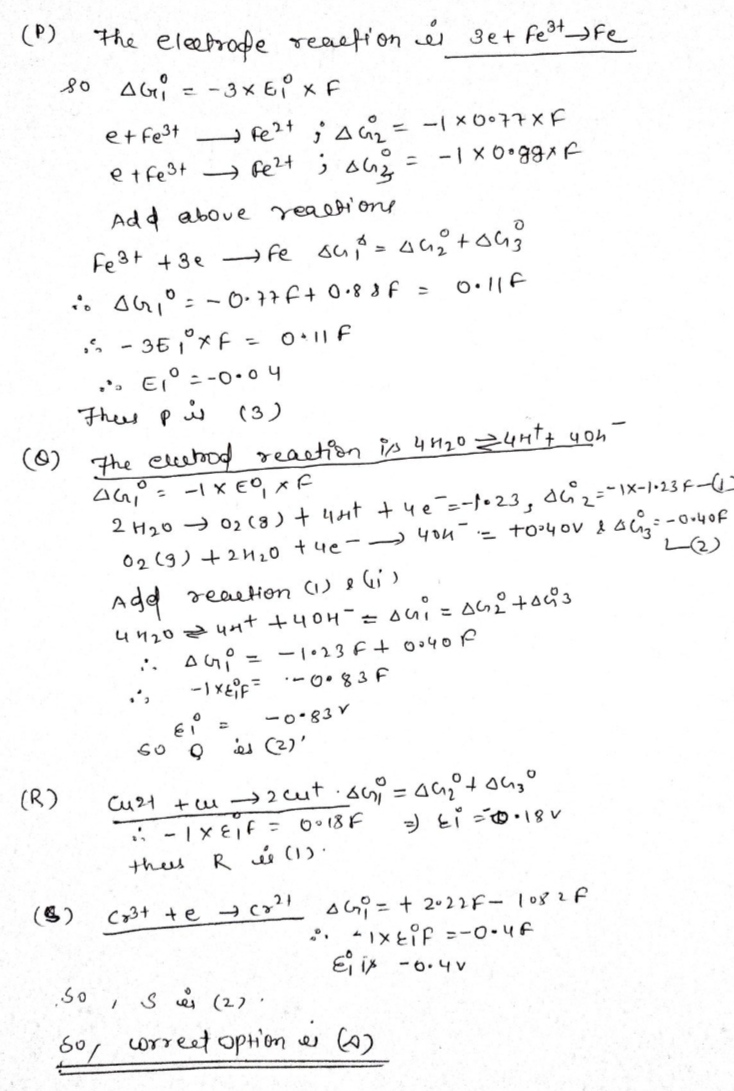 (P) The electrode reaction is 3e + Fe³⁺ → Fe
so ΔG₁° = -3 × E₁° × F
e + Fe³⁺ → Fe²⁺ ; ΔG₂° = -1 × 0.77 × F
e + Fe³⁺ → Fe²⁺ ; ΔG₃° = -1 × 0.88 × F
Add above reactions
Fe³⁺ + 3e → Fe ΔG₁° = ΔG₂° + ΔG₃°
∴ ΔG₁° = -0.77F + 0.88F = 0.11F
∴ -3E₁° × F = 0.11F
∴ E₁° = -0.04
Thus P is (3)
(Q) The electrod reaction is 4H₂O ⇌ 4H⁺ + 4OH⁻
ΔG₁° = -1 × E°₁ × F
2H₂O → O₂(g) + 4H⁺ + 4e⁻ = -1.23, ΔG₂° = -1×-1.23F —(1)
O₂(g) + 2H₂O + 4e⁻ → 4OH⁻ = +0.40V & ΔG₃° = -0.40F
—(2)
Add reaction (i) & (ii)
4H₂O ⇌ 4H⁺ + 4OH⁻ = ΔG₁° = ΔG₂° + ΔG°₃
∴ ΔG₁° = -1.23F + 0.40F
∴ -1×E₁°F = -0.83F
E₁° = -0.83V
So Q is (2)'
(R) Cu²⁺ + Cu → 2Cu⁺ . ΔG₁° = ΔG₂° + ΔG₃°
∴ -1 × E₁°F = 0.18F ⇒ E₁° = -0.18V
thus R is (1).
(S) Cr³⁺ + e → Cr²⁺ ΔG₁° = +2.22F - 1.82F
∴ -1×E₁°F = -0.4F
E₁° is -0.4V
So, S is (2).
So, correct option is